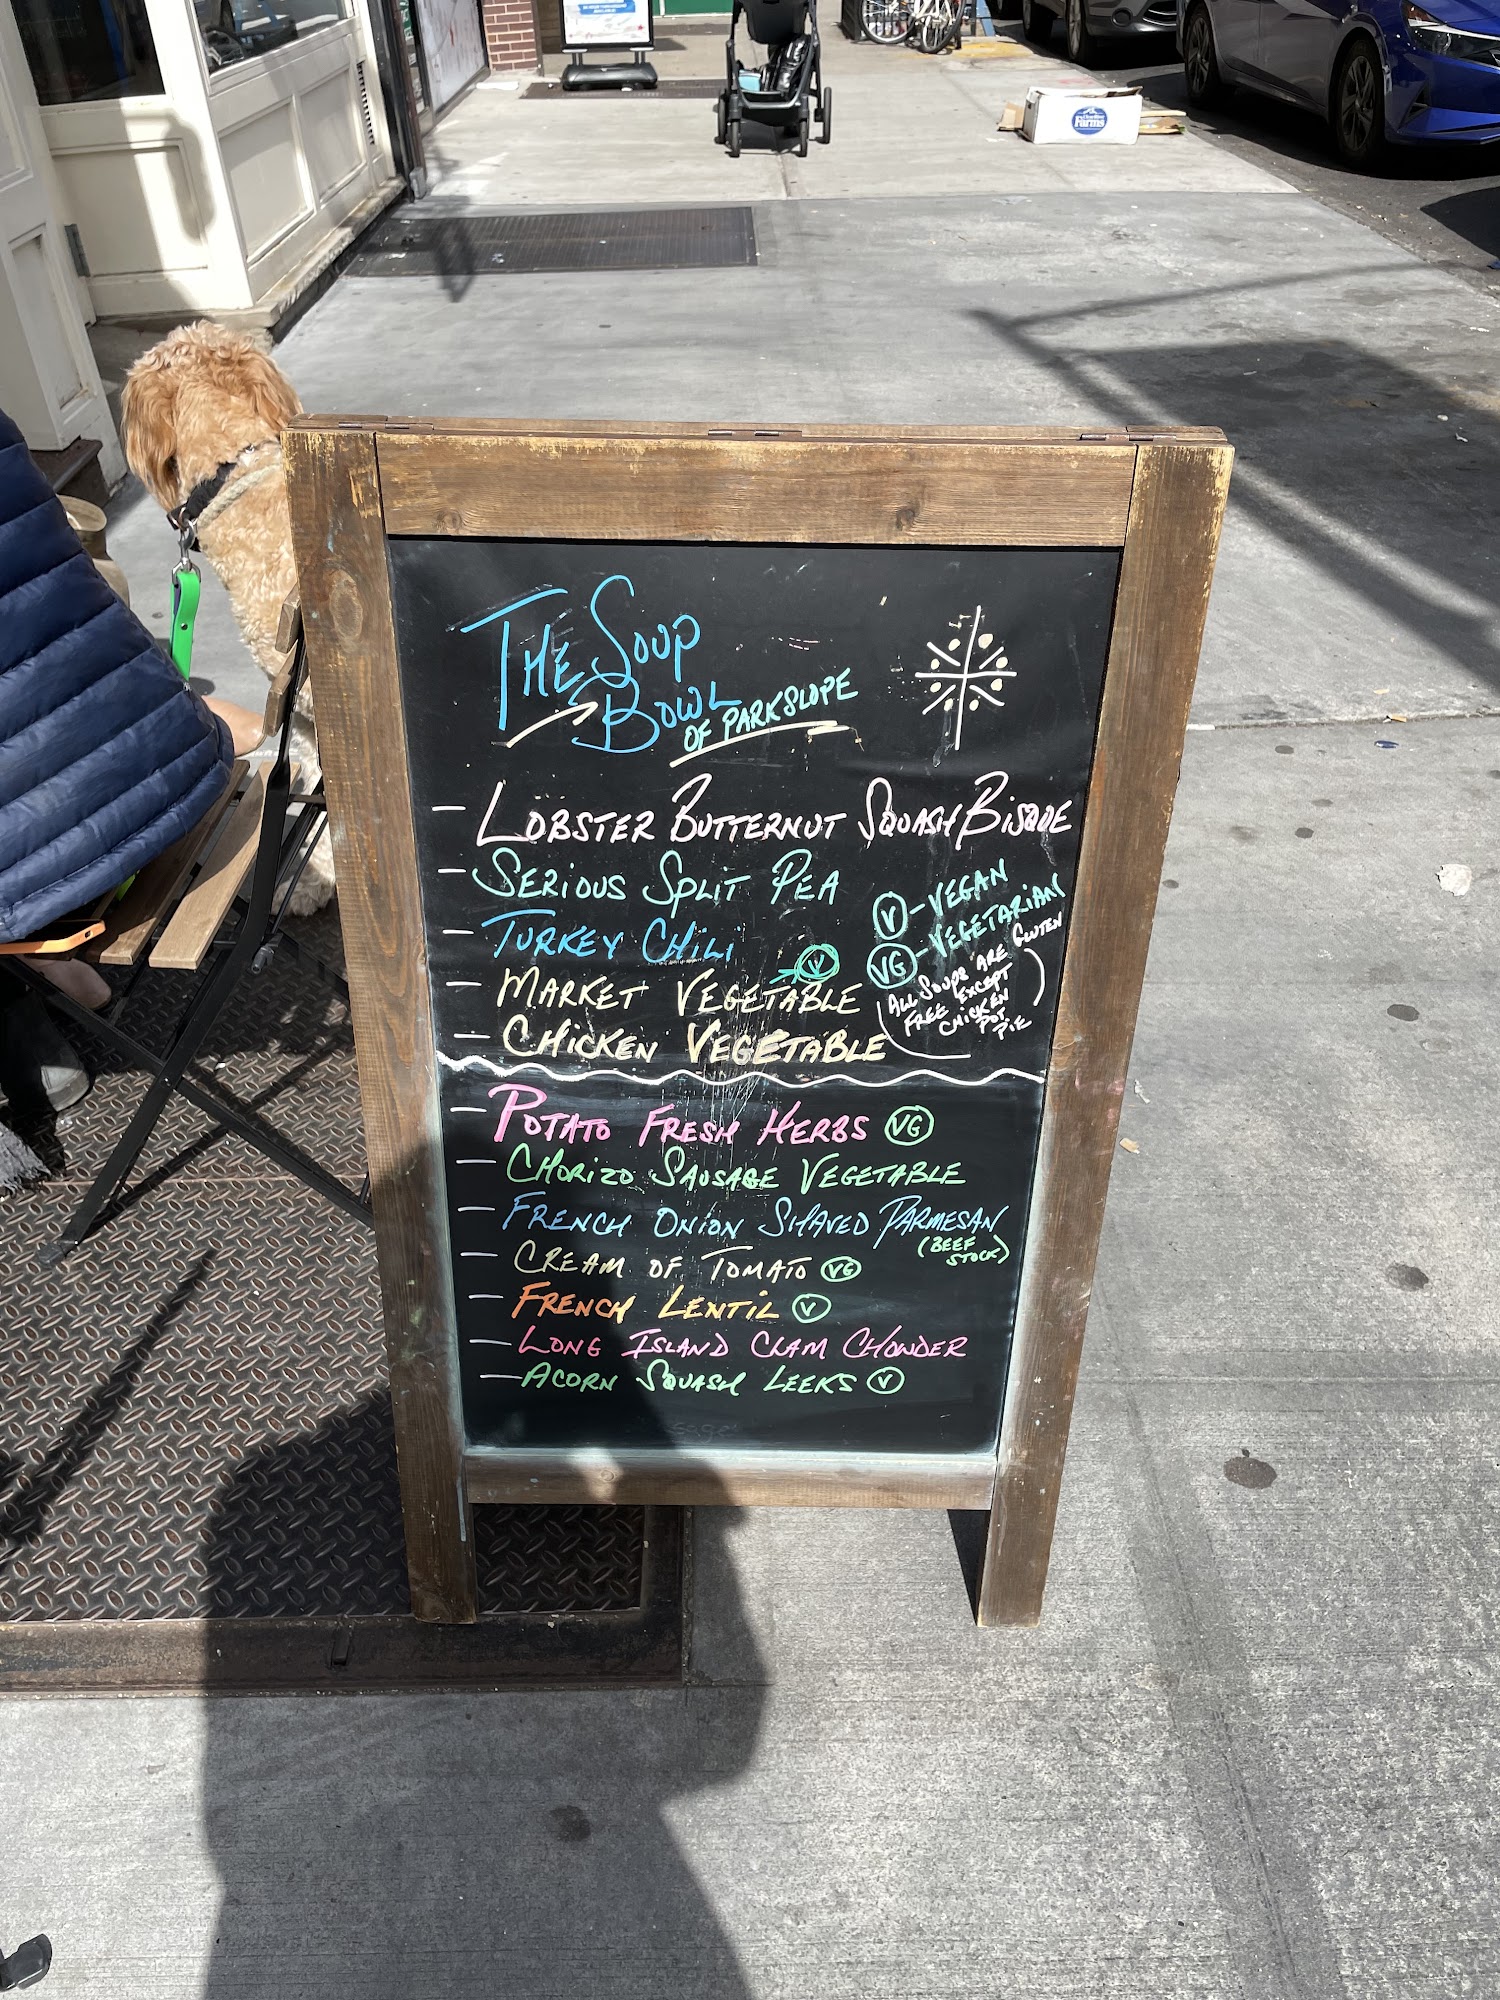 THE SOUP
BOWL
OF PARK SLOPE
- LOBSTER BUTTERNUT SQUASH BISQUE
- SERIOUS SPLIT PEA
- TURKEY CHILI
- MARKET VEGETABLE V
- CHICKEN VEGETABLE
V - VEGAN
VG - VEGETARIAN
(ALL SOUPS ARE GLUTEN
FREE EXCEPT
CHICKEN
POT
PIE)
- POTATO FRESH HERBS VG
- CHORIZO SAUSAGE VEGETABLE
- FRENCH ONION SHAVED PARMESAN
(BEEF
STOCK)
- CREAM OF TOMATO VG
- FRENCH LENTIL V
- LONG ISLAND CLAM CHOWDER
- ACORN SQUASH LEEKS V
Farms